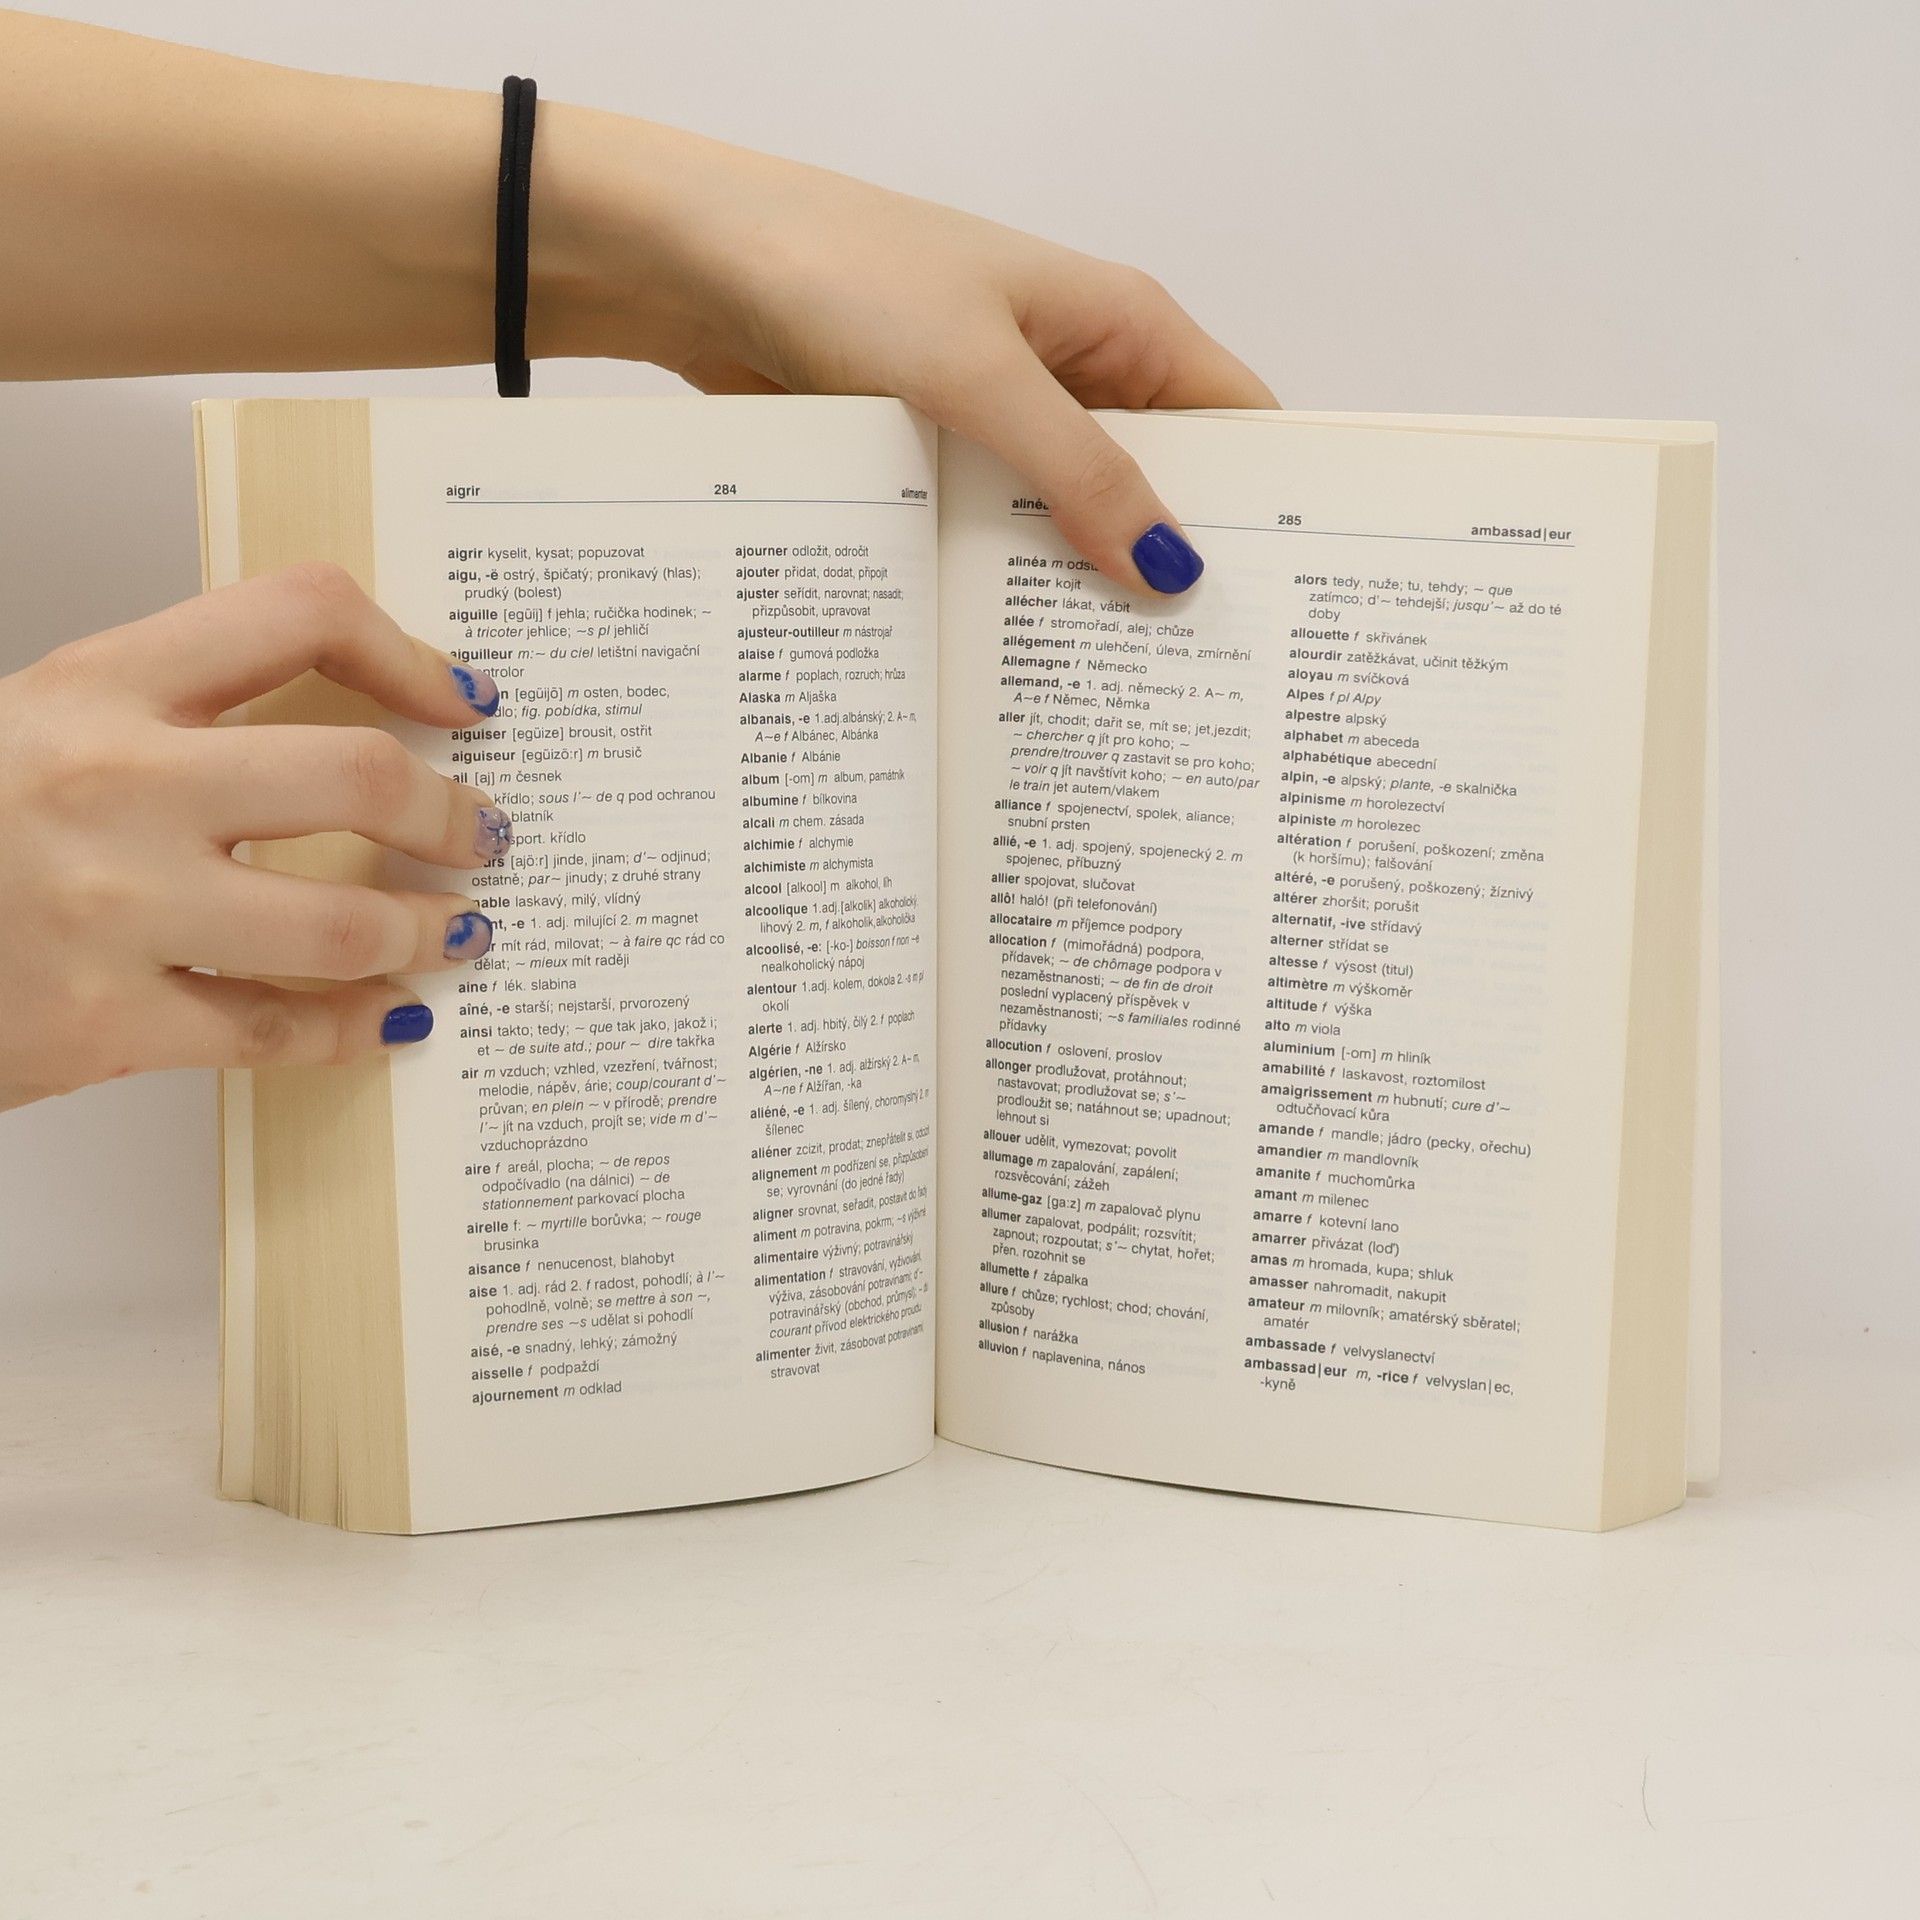 aigrir 284 alimenter
aigrir kyselit, kysat; popuzovat
aigu, -ë ostrý, špičatý; pronikavý (hlas);
prudký (bolest)
aiguille [egüij] f jehla; ručička hodinek; ~
à tricoter jehlice; ~s pl jehličí
aiguilleur m:~ du ciel letištní navigační
[egüijõ] m osten, bodec,
fig. pobídka, stimul
aiguiser [egüize] brousit, ostřit
aiguiseur [egüizö:r] m brusič
ail [aj] m česnek
křídlo; sous l'~ de q pod ochranou
blatník
sport. křídlo
[ajö:r] jinde, jinam; d'~ odjinud;
ostatně; par~ jinudy; z druhé strany
laskavý, milý, vlídný
-e 1. adj. milující 2. m magnet
mít rád, milovat; ~ à faire qc rád co
dělat; ~ mieux mít raději
aine f lék. slabina
aîné, -e starší; nejstarší, prvorozený
ainsi takto; tedy; ~ que tak jako, jakož i;
et ~ de suite atd.; pour ~ dire takřka
air m vzduch; vzhled, vzezření, tvářnost;
melodie, nápěv, árie; coup/courant d'~
průvan; en plein ~ v přírodě; prendre
l'~ jít na vzduch, projít se; vide m d'~
vzduchoprázdno
aire f areál, plocha; ~ de repos
odpočívadlo (na dálnici) ~ de
stationnement parkovací plocha
airelle f: ~ myrtille borůvka; ~ rouge
brusinka
aisance f nenucenost, blahobyt
aise 1. adj. rád 2. f radost, pohodlí; à l'~
pohodlně, volně; se mettre à son ~,
prendre ses ~s udělat si pohodlí
aisé, -e snadný, lehký; zámožný
aisselle f podpaždí
ajournement m odklad
ajourner odložit, odročit
ajouter přidat, dodat, připojit
ajuster seřídit, narovnat; nasadit;
přizpůsobit, upravovat
ajusteur-outilleur m nástrojař
alaise f gumová podložka
alarme f poplach, rozruch; hrůza
Alaska m Aljaška
albanais, -e 1.adj.albánský; 2. A~ m,
A~e f Albánec, Albánka
Albanie f Albánie
album [-om] m album, památník
albumine f bílkovina
alcali m chem. zásada
alchimie f alchymie
alchimiste m alchymista
alcool [alkool] m alkohol, líh
alcoolique 1.adj.[alkolik] alkoholický,
lihový 2. m, f alkoholik,alkoholička
alcoolisé, -e: [-ko-] boisson f non ~e
nealkoholický nápoj
alentour 1.adj. kolem, dokola 2. ~s m pl
okolí
alerte 1. adj. hbitý, čilý 2. f poplach
Algérie f Alžírsko
algérien, -ne 1. adj. alžírský 2. A~ m,
A~ne f Alžířan, -ka
aliéné, -e 1. adj. šílený, choromyslný 2. m
šílenec
aliéner zcizit, prodat; znepřátelit si, odcizit
alignement m podřízení se, přizpůsobení
se; vyrovnání (do jedné řady)
aligner srovnat, seřadit, postavit do řady
aliment m potravina, pokrm; ~s výživné
alimentaire výživný; potravinářský
alimentation f stravování, vyživování,
výživa, zásobování potravinami; d'~
potravinářský (obchod, průmysl); ~ du
courant přívod elektrického proudu
alimenter živit, zásobovat potravinami,
stravovat
285 ambassad|eur
alinéa m
allaiter kojit
allécher lákat, vábit
allée f stromořadí, alej; chůze
allégement m ulehčení, úleva, zmírnění
Allemagne f Německo
allemand, -e 1. adj. německý 2. A~ m,
A~e f Němec, Němka
aller jít, chodit; dařit se, mít se; jet,jezdit;
~ chercher q jít pro koho; ~
prendre/trouver q zastavit se pro koho;
~ voir q jít navštívit koho; ~ en auto/par
le train jet autem/vlakem
alliance f spojenectví, spolek, aliance;
snubní prsten
allié, -e 1. adj. spojený, spojenecký 2. m
spojenec, příbuzný
allier spojovat, slučovat
allô! haló! (při telefonování)
allocataire m příjemce podpory
allocation f (mimořádná) podpora,
přídavek; ~ de chômage podpora v
nezaměstnanosti; ~ de fin de droit
poslední vyplacený příspěvek v
nezaměstnanosti; ~s familiales rodinné
přídavky
allocution f oslovení, proslov
allonger prodlužovat, protáhnout;
nastavovat; prodlužovat se; s'~
prodloužit se; natáhnout se; upadnout;
lehnout si
allouer udělit, vymezovat; povolit
allumage m zapalování, zapálení;
rozsvěcování; zážeh
allume-gaz [ga:z] m zapalovač plynu
allumer zapalovat, podpálit; rozsvítit;
zapnout; rozpoutat; s'~ chytat, hořet;
přen. rozohnit se
allumette f zápalka
allure f chůze; rychlost; chod; chování,
způsoby
allusion f narážka
alluvion f naplavenina, nános
alors tedy, nuže; tu, tehdy; ~ que
zatímco; d'~ tehdejší; jusqu'~ až do té
doby
allouette f skřivánek
alourdir zatěžkávat, učinit těžkým
aloyau m svíčková
Alpes f pl Alpy
alpestre alpský
alphabet m abeceda
alphabétique abecední
alpin, -e alpský; plante, -e skalnička
alpinisme m horolezectví
alpiniste m horolezec
altération f porušení, poškození; změna
(k horšímu); falšování
altéré, -e porušený, poškozený; žíznivý
altérer zhoršit; porušit
alternatif, -ive střídavý
alterner střídat se
altesse f výsost (titul)
altimètre m výškoměr
altitude f výška
alto m viola
aluminium [-om] m hliník
amabilité f laskavost, roztomilost
amaigrissement m hubnutí; cure d'~
odtučňovací kůra
amande f mandle; jádro (pecky, ořechu)
amandier m mandlovník
amanite f muchomůrka
amant m milenec
amarre f kotevní lano
amarrer přivázat (loď)
amas m hromada, kupa; shluk
amasser nahromadit, nakupit
amateur m milovník; amatérský sběratel;
amatér
ambassade f velvyslanectví
ambassad|eur m, -rice f velvyslan|ec,
-kyně